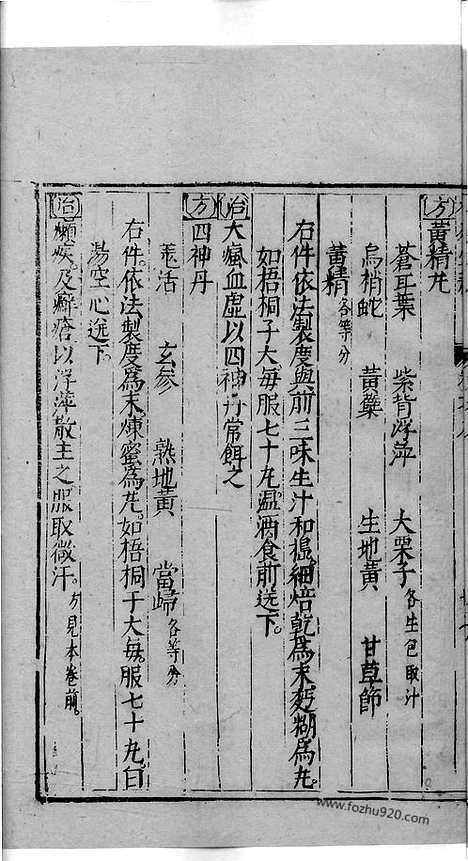 方黃精丸
蒼耳葉 紫背浮萍 大栗子各生包取汁
烏梢蛇 黃蘗 生地黃 甘草節
黃精各等分
右件依法製度與前三味生汁和搗細焙乾爲末麪糊爲丸。
如梧桐子大每服七十丸。溫酒食前送下。
治大瘋血虛以四神丹常餌之
方四神丹
羗活 玄參 熟地黃 當歸各等分
右件。依法製度爲末。煉蜜爲丸。如梧桐子大每。服七十丸。白
湯空心送下。
治癩疾。及癬瘡以浮萍散主之服取微汗。方見本卷前。
www.fozhu920.com